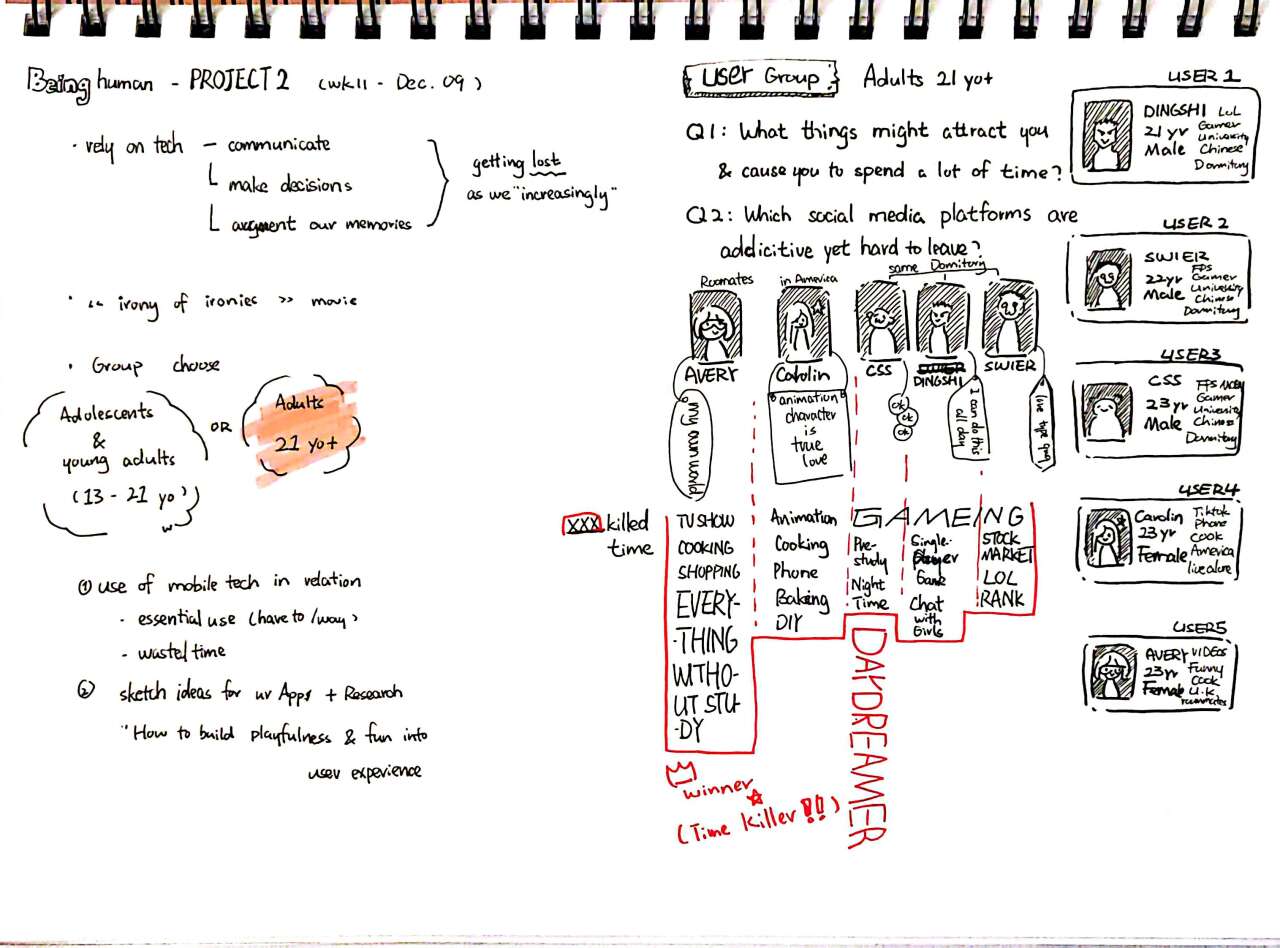 Being human - PROJECT 2 (wk11 - Dec. 09)
· rely on tech - communicate
make decisions
augment our memories
getting lost
as we "increasingly"
· "irony of ironies" movie
· Group choose
Adolescents
&
young adults
(13 - 21 yo)
OR
Adults
21 yo+
① use of mobile tech in relation
- essential use (have to / way)
- waste/time
② sketch ideas for ur Apps + Research
"How to build playfulness & fun into
user experience
USER Group Adults 21 yo+
Q1: What things might attract you
& cause you to spend a lot of time?
Q2: Which social media platforms are
addicitive yet hard to leave?
Roomates
in America
same Domitory
AVERY
Carolin
CSS
DINGSHI
SWIER
my own world
animation
character
is
true
love
ok
ok
ok
I can do this
all day
XXX killed
time
TV SHOW
COOKING
SHOPPING
EVERY-
-THING
WITHO-
UT STU-
-DY
Animation
Cooking
Phone
Baking
DIY
GAMEING
Pre-
study
Night
Time
Single-
Player
Game
Chat
with
Girls
STOCK
MARKET
LOL
RANK
DAYDREAMER
winner
(Time Killer!!)
USER 1
DINGSHI LoL
21 yr Gamer
University
Male Chinese
Dormitory
USER 2
SWIER
FPS
22yr Gamer
University
Male Chinese
Dormitory
USER3
CSS
23 yr Gamer
University
Male Chinese
Dormitory
USER4
Carolin Tiktok
Phone
23 yr Cook
Female America
live alone
USER5
AVERY VIDEOS
23yr Funny
Cook
Female U.K
roommates